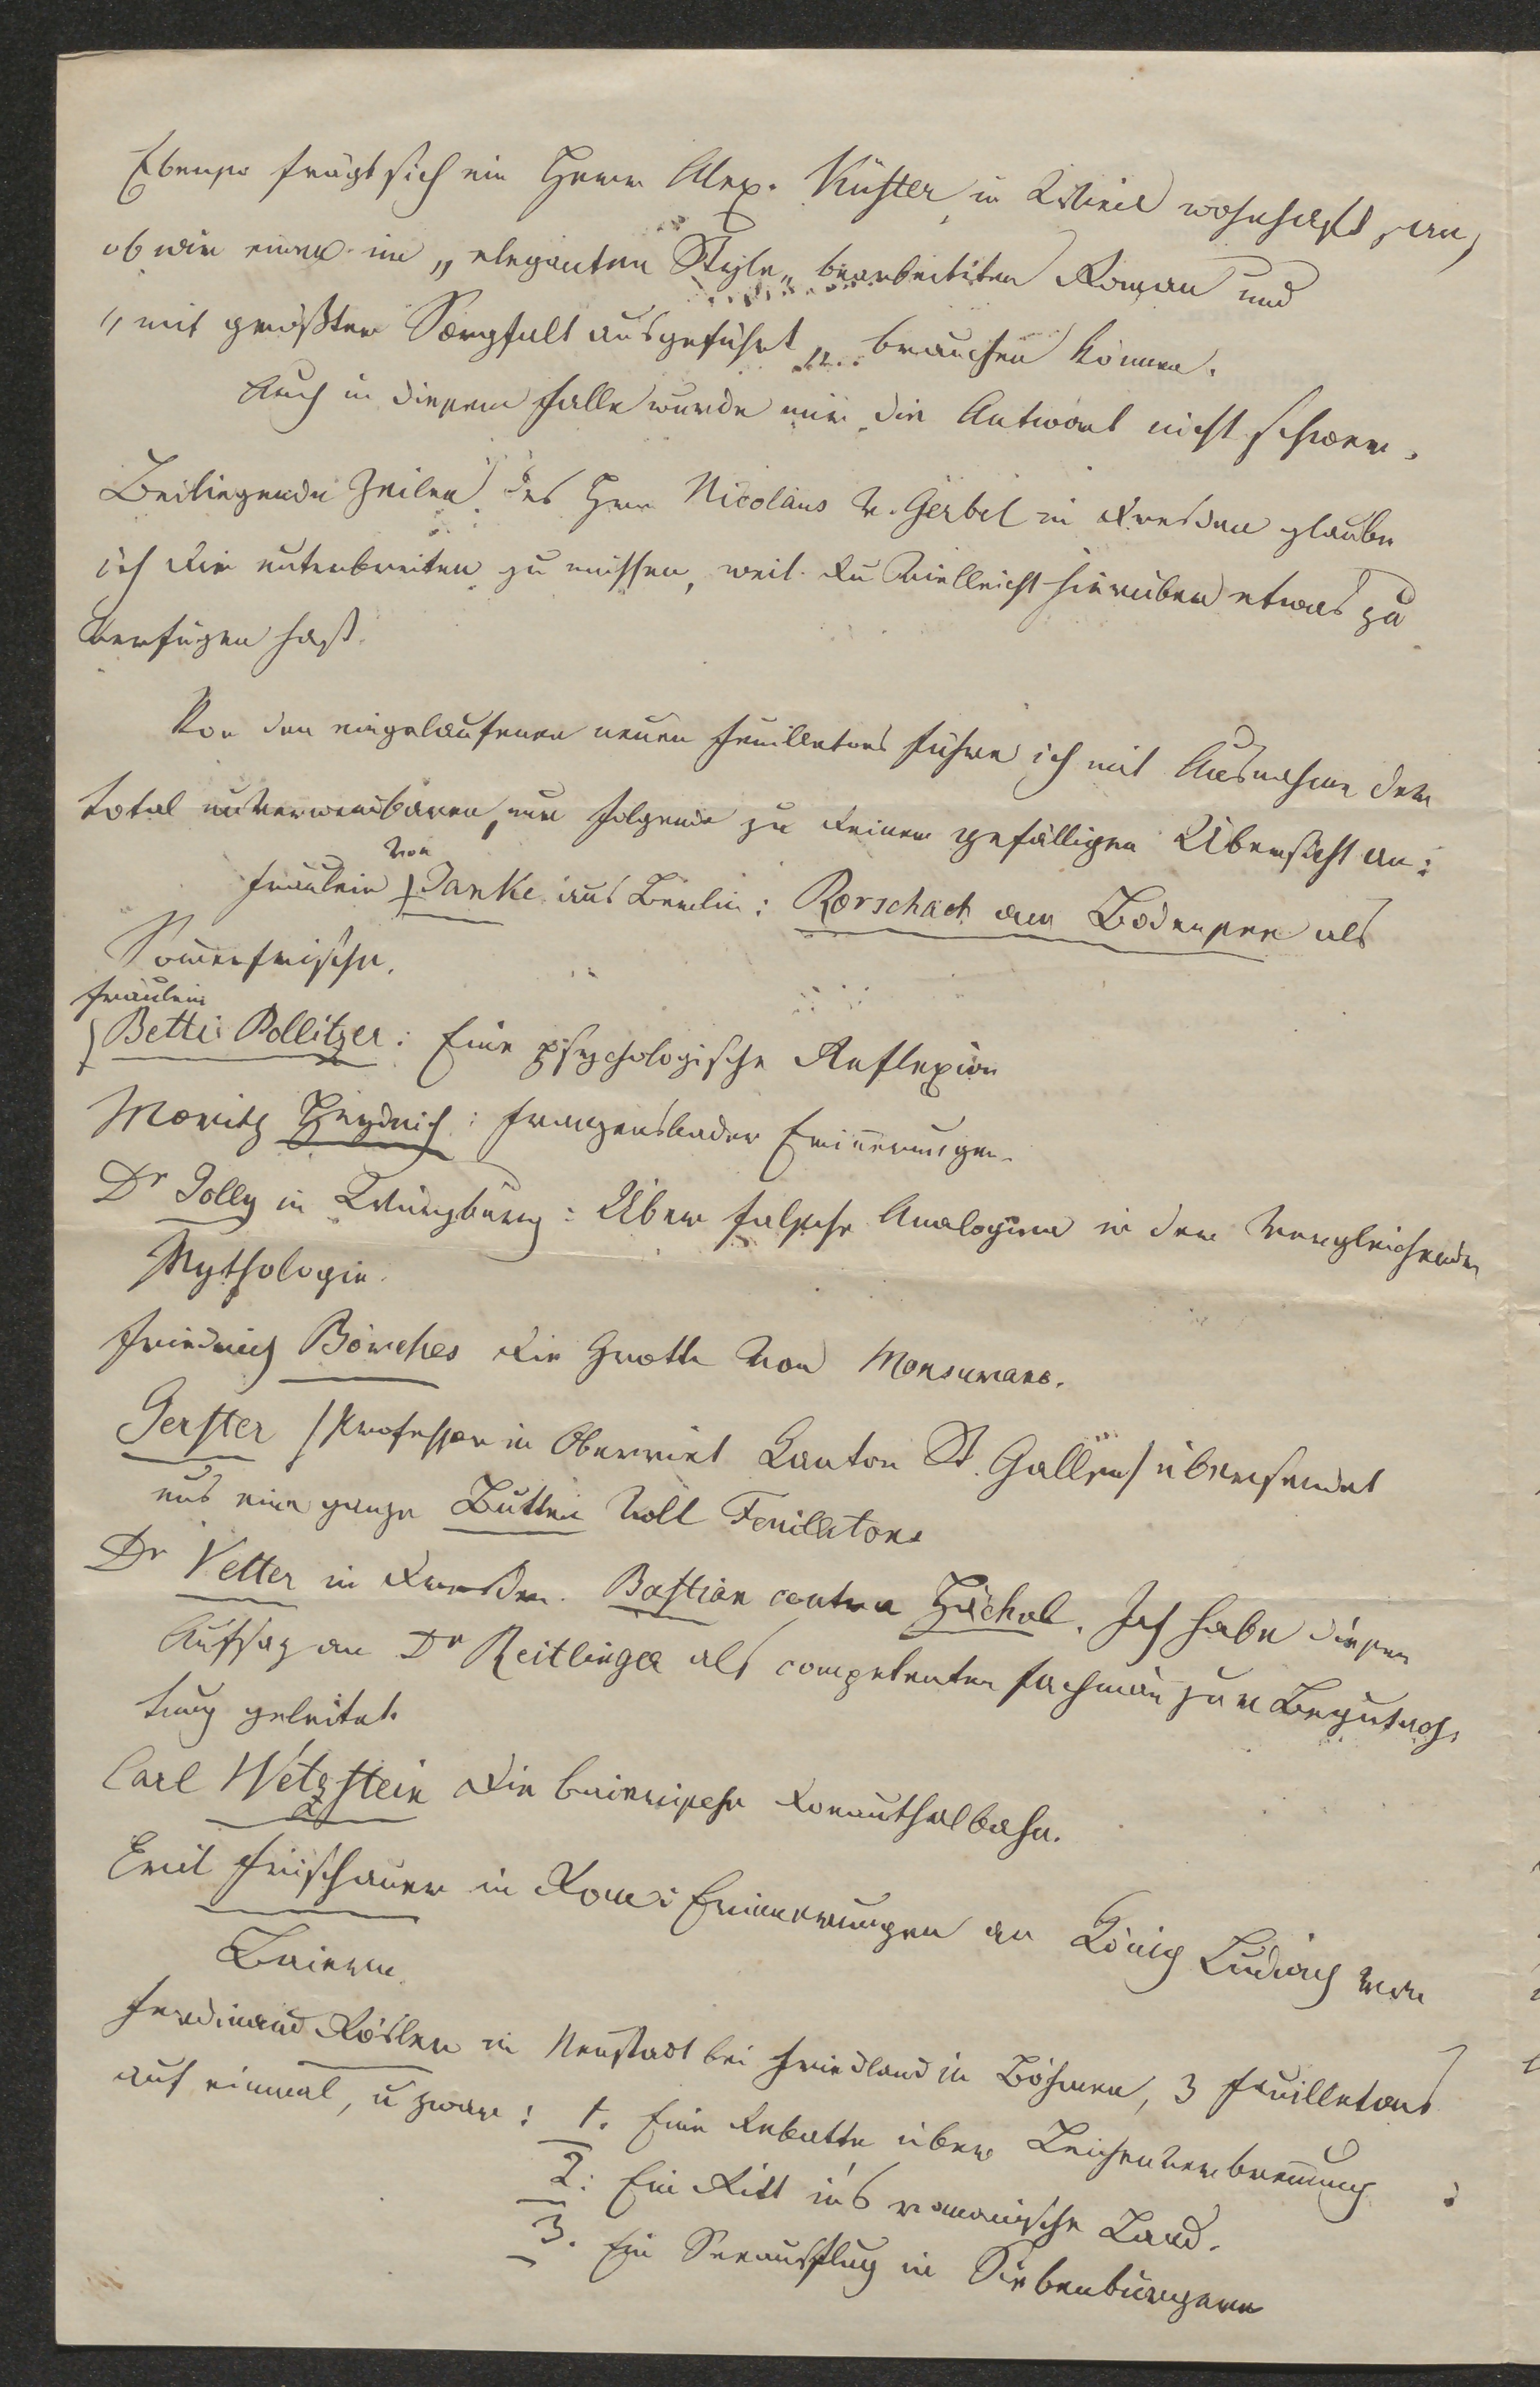 Ebenso frägt sich ein Herr Alex. Küster, in Wien wohnhaft, an,
ob wir einen im „eleganten Style„ bearbeiteten Roman und
„mit größter Sorgfalt ausgeführt„ brauchen können.
Auch in diesem Falle wurde mir die Antwort nicht schwer.
Beiliegende Zeilen des Herrn Nicolaus v. Gerbel in Dresden glaube
ich Dir unterbreiten zu müssen, weil Du vielleicht hierüber etwas zu
verfügen hast.
Von den eingelaufenen neuen Feuilletons führe ich mit Ausnahme der
total unverwendbaren, nur folgende zu Deiner gefälligen Übersicht an:
Fräulein von Janke aus Berlin: Rorschach am Bodensee als
Sommerfrische.
Fräulein
Betti Pollitzer: Eine psychologische Reflexion
Moritz Heydrich: Franzensbader Erinnerungen.
Dr Jolly in Würzburg: Über falsche Analogien in der vergleichenden
Mythologie.
Friedrich Börches Die Grotte von Monsumano.
Gerster /Professor in Oberriet Canton St. Gallen/ übersendet
uns eine ganze Butten voll Feuilletons
Dr Vetter in Dresden. Bastian contra Häckel. Ich habe diesen
Aufsatz an Dr Reitlinger als competenten Fachmann zur Begutach-
tung geleitet.
Carl Wetzstein Die bairische Donauthalbahn.
Emil Frischauer in Rom: Erinnerungen an König Ludwig von
Baiern.
Ferdinand Rösler in Neustadt bei Friedland in Böhmen, 3 Feuilletons
auf einmal, u zwar: 1. Eine Debatte über Leichenverbrennung
2. Ein Ritt in's romanische Land.
3. Ein Seeausflug in Siebenbürgen